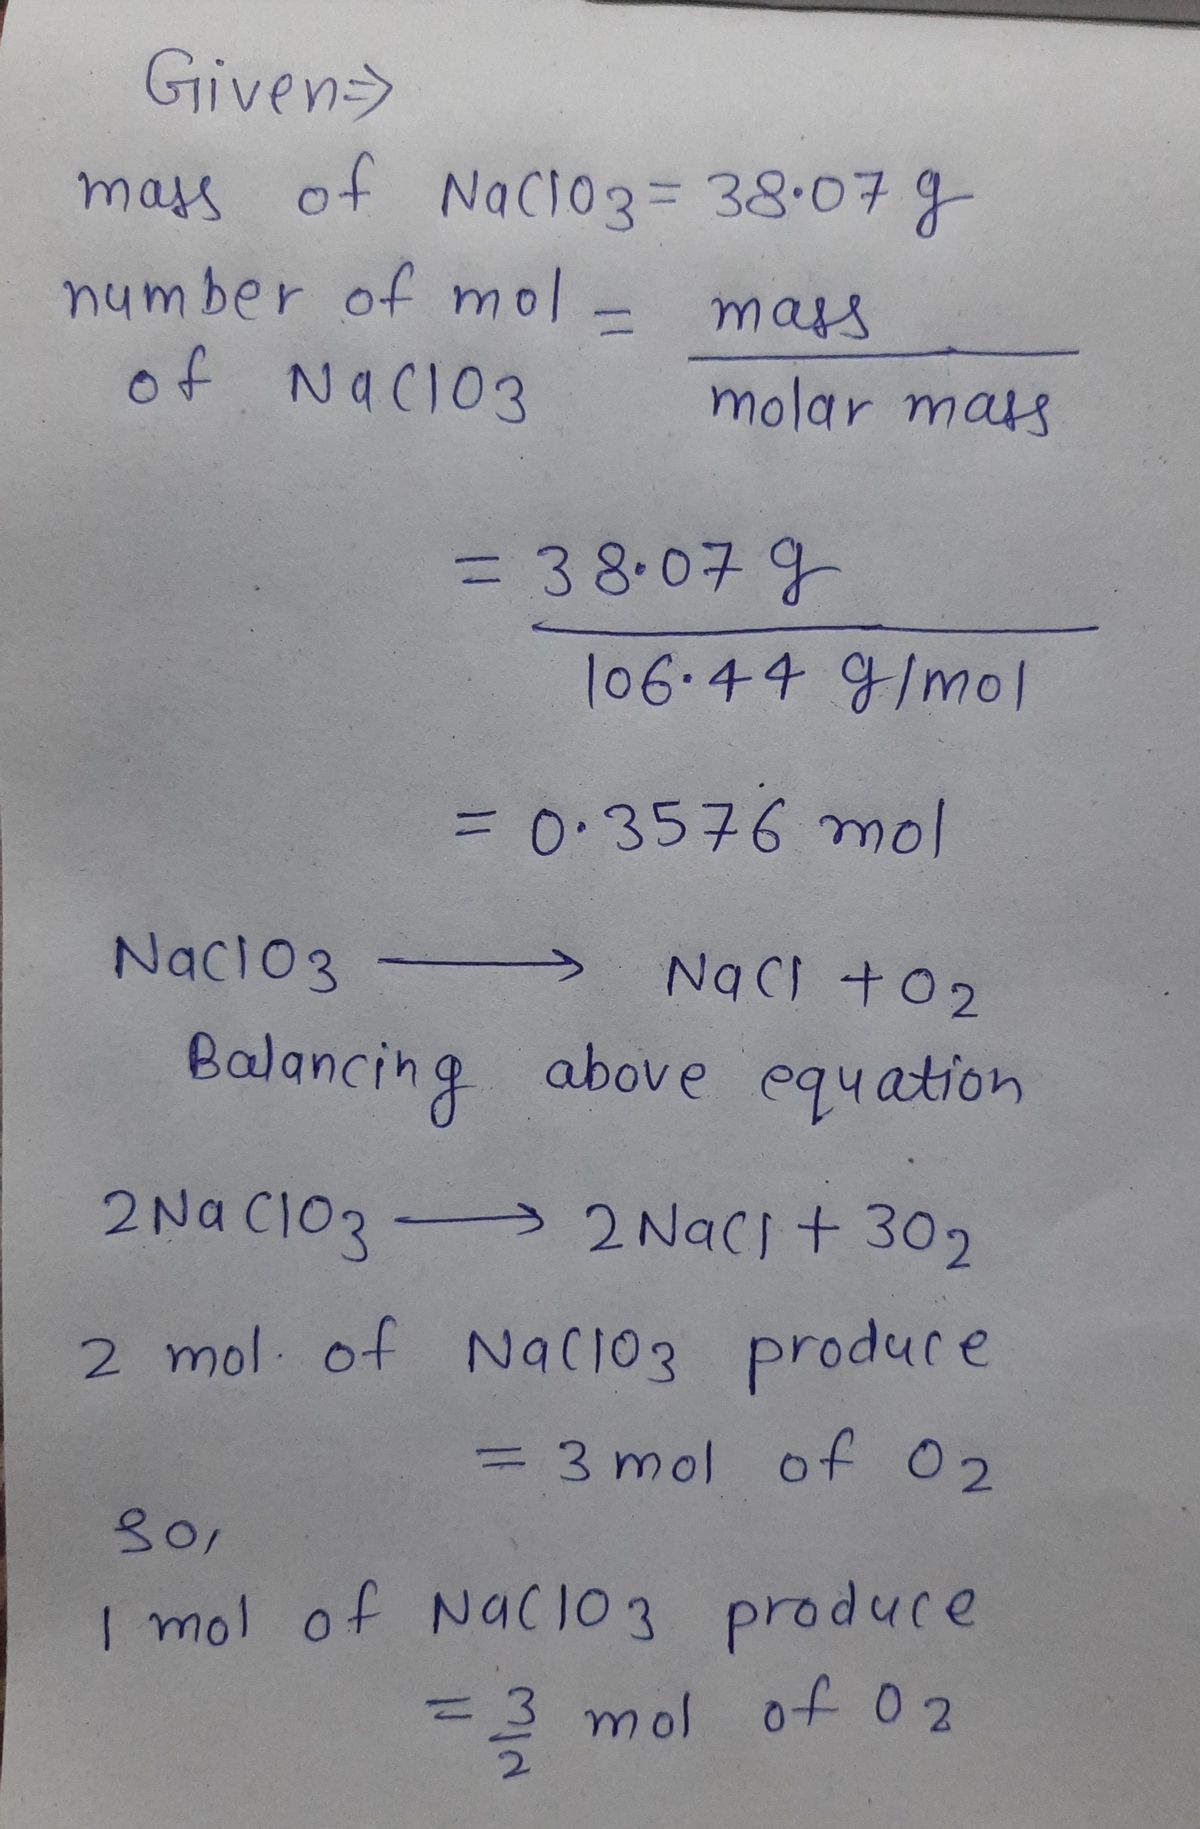 Given⇒
mass of NaClO3 = 38.07 g
number of mol = mass
of NaClO3 molar mass
= 38.07 g
106.44 g/mol
= 0.3576 mol
NaClO3 ⟶ NaCl + O2
Balancing above equation
2NaClO3 ⟶ 2NaCl + 3O2
2 mol. of NaClO3 produce
= 3 mol of O2
So,
1 mol of NaClO3 produce
= 3/2 mol of O2